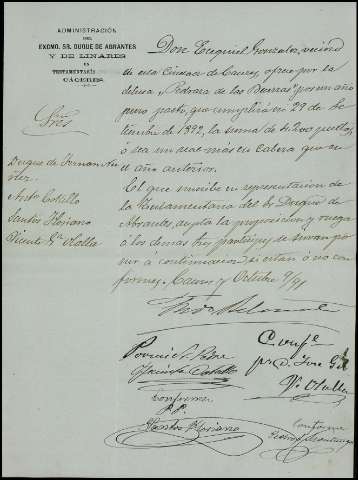 ADMINISTRACIÓN
DEL
EXCMO. SR. DUQUE DE ABRANTES
Y DE LINARES
EN
TESTAMENTARÍA
CÁCERES.
Sres
Duque de Fernan Nuñez
Antº Cotallo
Santos Floriano
Vicente Gª Olalla
Don Ezequiel Gonzalez, vecino
de esta Ciudad de Caceres, ofrece por la
dehesa, "Pedrera de las Burras" por un año
puro pasto, que cumplirá en 29 de Se-
tiembre de 1892, la suma de 4.200 pesetas
ó sea un real más en cabeza que en
el año anterior.
El que suscribe en representacion de
la Testamentaria del Sr Duque de
Abrantes, acepta la proposicion y ruega
á los demas Sres participes se sirvan po-
ner á continuacion si estan ó no con-
formes. Caceres y Octubre 9/91
Vicente Cotallo
Confe
pr D. José Gil
Vte Olalla
Conforme
P.P.
Santos Floriano
Conforme